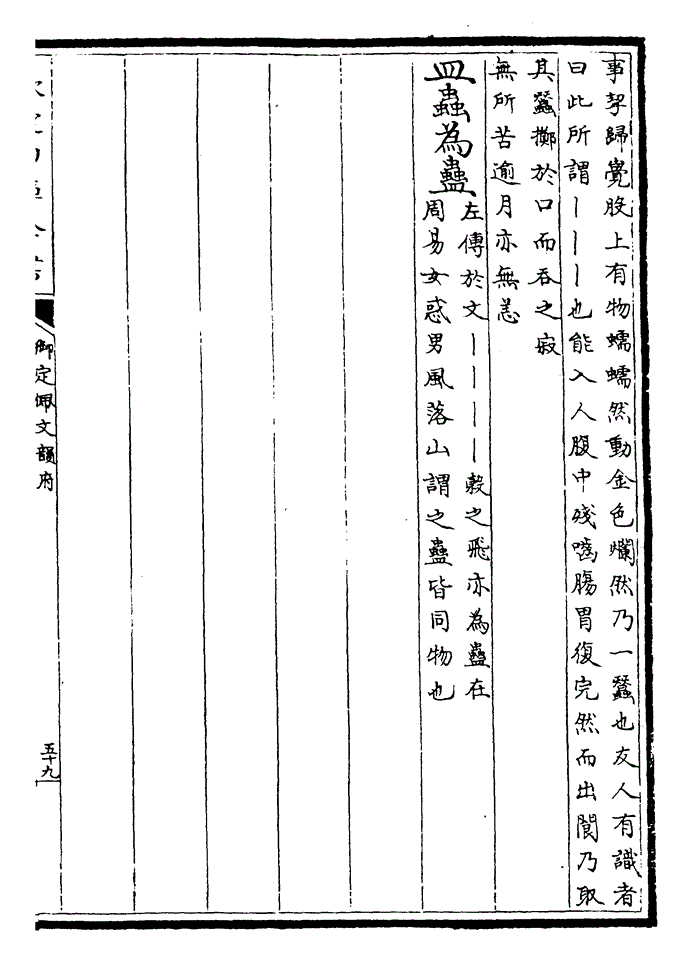 事挈歸覺股上有物蠕蠕然動金色爛然乃一蠶也友人有識者
曰此所謂丨丨丨也能入人腹中殘嚙腸胃復完然而出閬乃取
其蠶擲於口而吞之寂
無所苦逾月亦無恙
皿蟲為蠱
左傳於文丨丨丨丨榖之飛亦為蠱在
周易女惑男風落山謂之蠱皆同物也
御定佩文韻府
五十九